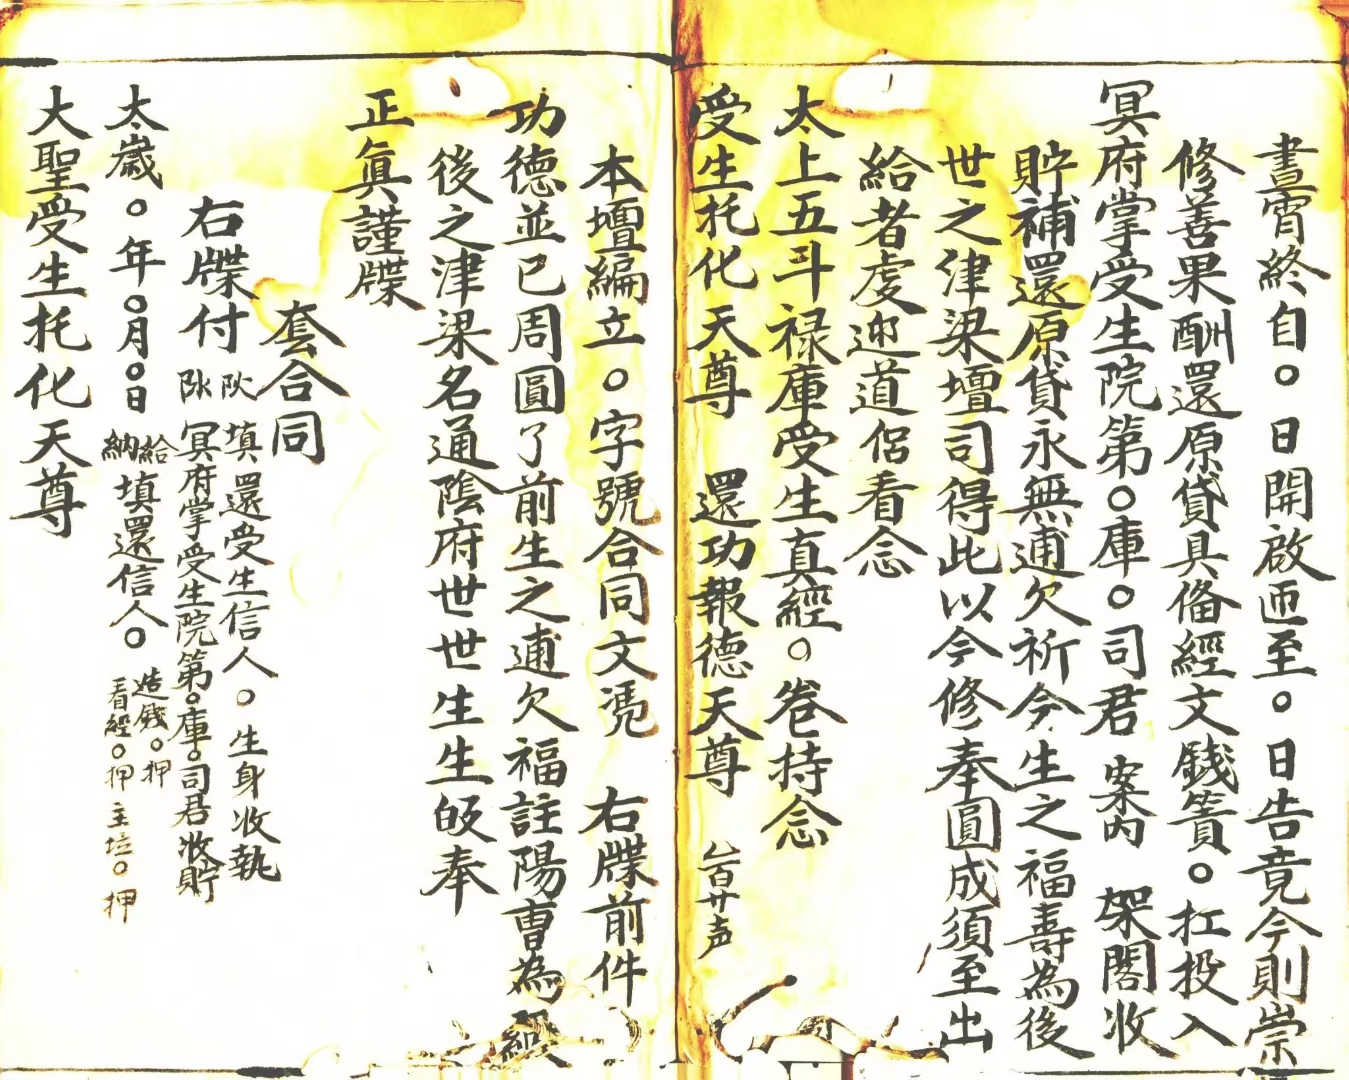 晝宵終自○日開啟迊至○日告竟今則崇
修善果酬還原貸具俻經文錢簀○扛投入
冥府掌受生院第○庫○司君 案內 架閣收
貯補還原貸永無逋欠祈今生之福壽為後
世之津梁壇司得此以今修奉圓成須至出
給者虔迎道侶看念
太上五斗禄庫受生真經○卷持念
受生托化天尊 還功報德天尊 百廿声
本壇編立○字號合同文凴 右牒前件
功德並已周圓了前生之逋欠福註陽曹為
後之津梁名通陰府世世生生皈奉
正眞謹牒
套合同
右牒付
填還受生信人○生身收執
冥府掌受生院第○庫○司君收貯
太歲○年○月○日
給納填還信人○
造錢○押
看經○押
主坛○押
大聖受生托化天尊